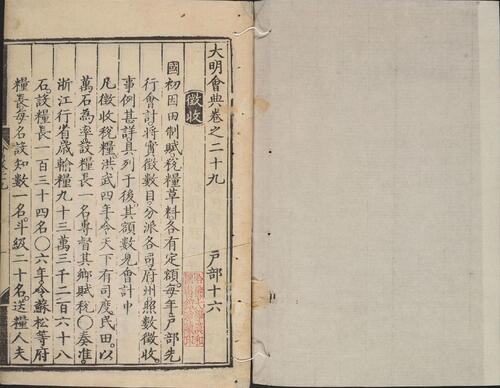 大明會典卷之二十九
戶部十六
徵收
國初因田制賦稅糧草料各有定額每年戶部先
行會計將實徵數目分派各司府州照數徵收
事例甚詳具列于後其額數見會計中
凡徵收稅糧洪武四年令天下有司度民田以
萬石為率設糧長一名專督其鄉賦稅〇奏准
浙江行省歲輸糧九十三萬三千二百六十八
石設糧長一百三十四名〇六年令蘇松等府
糧長每名設知數一名斗級二十名送糧人夫